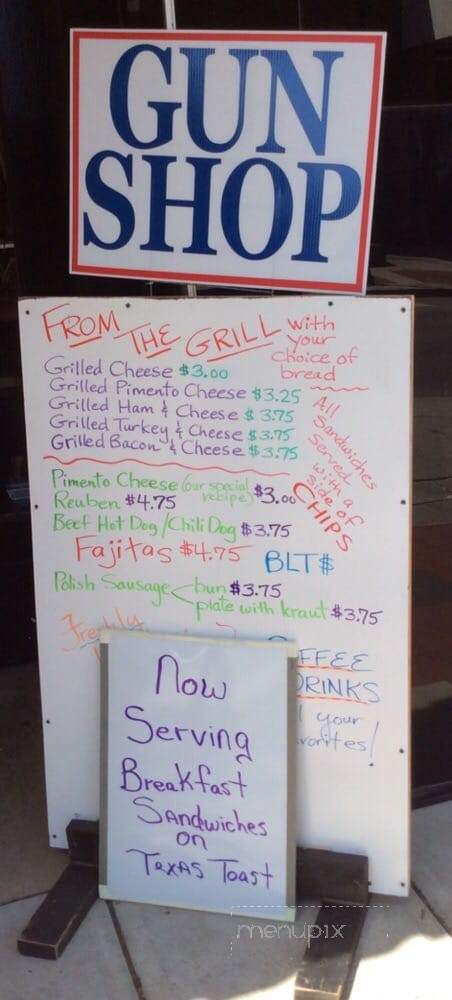 GUN
SHOP
FROM THE GRILL with your choice of bread
Grilled Cheese $3.00
Grilled Pimento Cheese $3.25
Grilled Ham & Cheese $3.75
Grilled Turkey & Cheese $3.75
Grilled Bacon & Cheese $3.75
All Sandwiches Served with a side of CHIPS
Pimento Cheese (our special recipe) $3.00
Reuben $4.75
Beef Hot Dog/Chili Dog $3.75
Fajitas $4.75 BLT$
Polish Sausage bun $3.75
plate with kraut $3.75
Freshly
FFEE
DRINKS
your
vorites!
Now
Serving
Breakfast
Sandwiches
on
Texas Toast
menupix